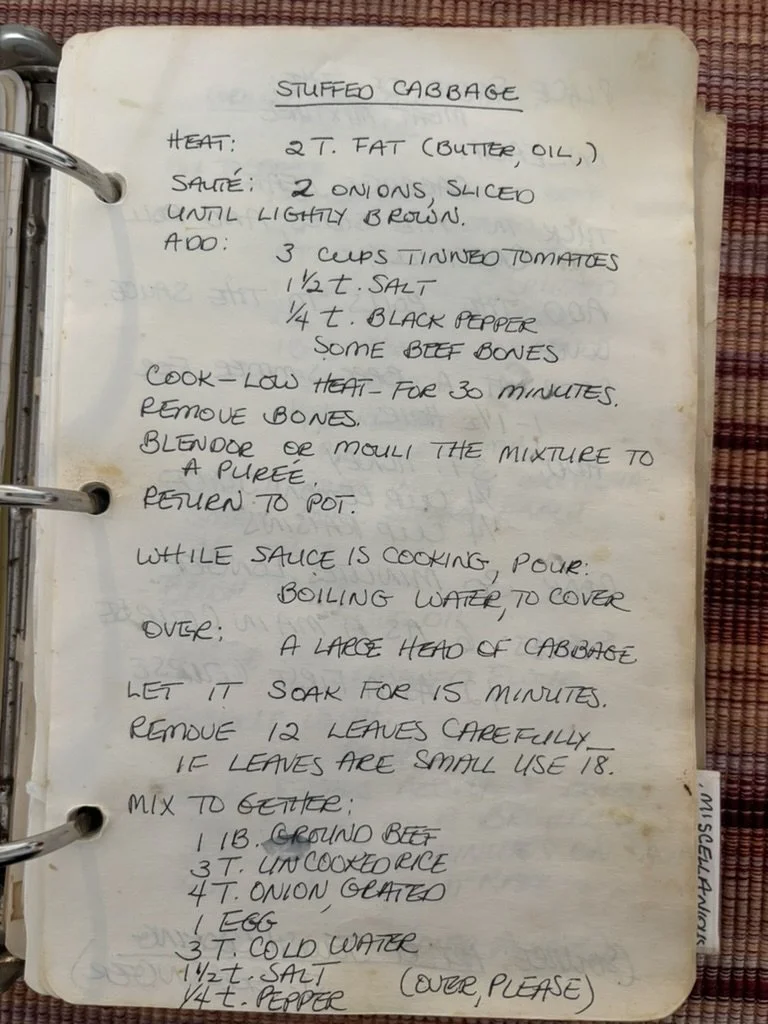 STUFFED CABBAGE
HEAT: 2 T. FAT (BUTTER, OIL,)
SAUTÉ: 2 ONIONS, SLICED
UNTIL LIGHTLY BROWN.
ADD: 3 CUPS TINNED TOMATOES
1 1/2 t. SALT
1/4 t. BLACK PEPPER
SOME BEEF BONES
COOK - LOW HEAT - FOR 30 MINUTES.
REMOVE BONES.
BLENDOR OR MOULI THE MIXTURE TO
A PUREÉ.
RETURN TO POT.
WHILE SAUCE IS COOKING, POUR:
BOILING WATER, TO COVER
OVER: A LARGE HEAD OF CABBAGE
LET IT SOAK FOR 15 MINUTES.
REMOVE 12 LEAVES CAREFULLY_
IF LEAVES ARE SMALL USE 18.
MIX TO GETHER:
1 lB. GROUND BEEF
3 T. UNCOOKED RICE
4 T. ONION, GRATED
1 EGG
3 T. COLD WATER
1 1/2 t. SALT
1/4 t. PEPPER (OVER, PLEASE)
MISCELLANIOUS